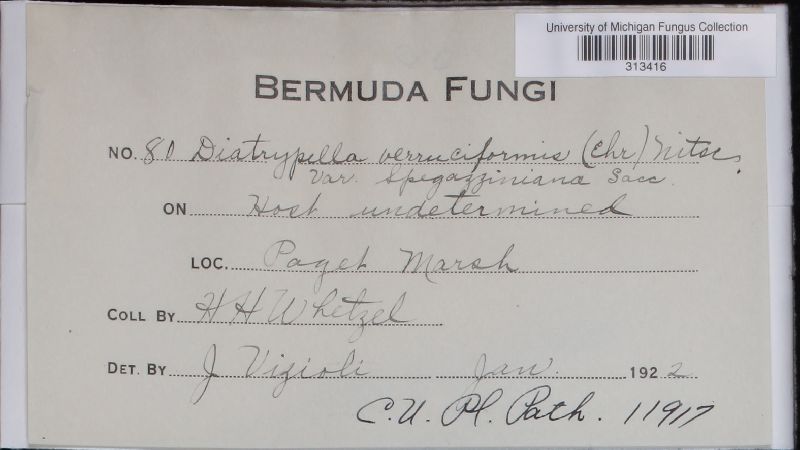 University of Michigan Fungus Collection
313416
BERMUDA FUNGI
NO. 80 Diatrypella verruciformis (Ehr) Nitsc.
Var. Spegazziniana Sacc.
ON Host undetermined
LOC. Paget Marsh
COLL BY H H Whetzel
DET. BY J Vizioli Jan. 1922
C.U. Pl. Path. 11917